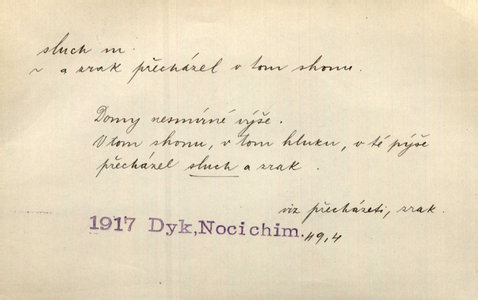 sluch m.
~ a zrak přecházel v tom shonu.
Domy nesmírné výše.
V tom shonu, v tom hluku, v té pýše
přecházel sluch a zrak.
viz přecházeti, zrak.
1917 Dyk, Nocichim. 119,4